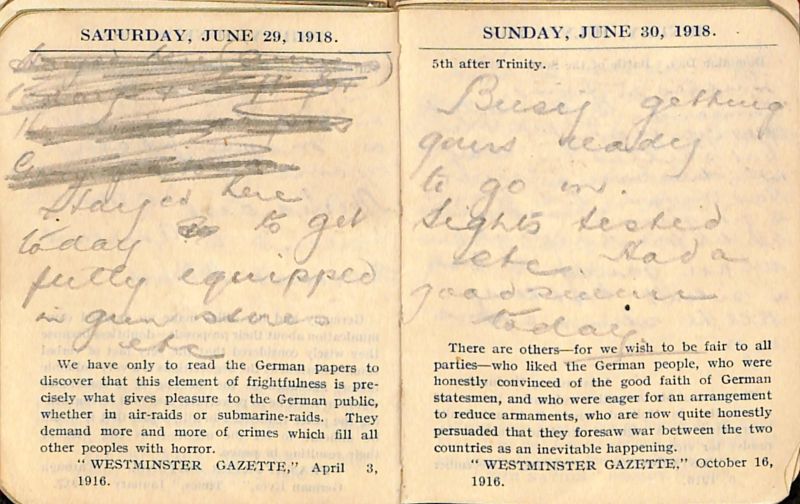 SATURDAY, JUNE 29, 1918.
Stayed here
today to get
fully equipped
in gun stores
etc
We have only to read the German papers to
discover that this element of frightfulness is pre-
cisely what gives pleasure to the German public,
whether in air-raids or submarine-raids. They
demand more and more of crimes which fill all
other peoples with horror.
"WESTMINSTER GAZETTE," April 3,
1916.
SUNDAY, JUNE 30, 1918.
5th after Trinity.
Busy getting
guns ready
to go in.
Sights tested
etc. Had a
good swim
today
There are others—for we wish to be fair to all
parties—who liked the German people, who were
honestly convinced of the good faith of German
statesmen, and who were eager for an arrangement
to reduce armaments, who are now quite honestly
persuaded that they foresaw war between the two
countries as an inevitable happening.
"WESTMINSTER GAZETTE." October 16,
1916.